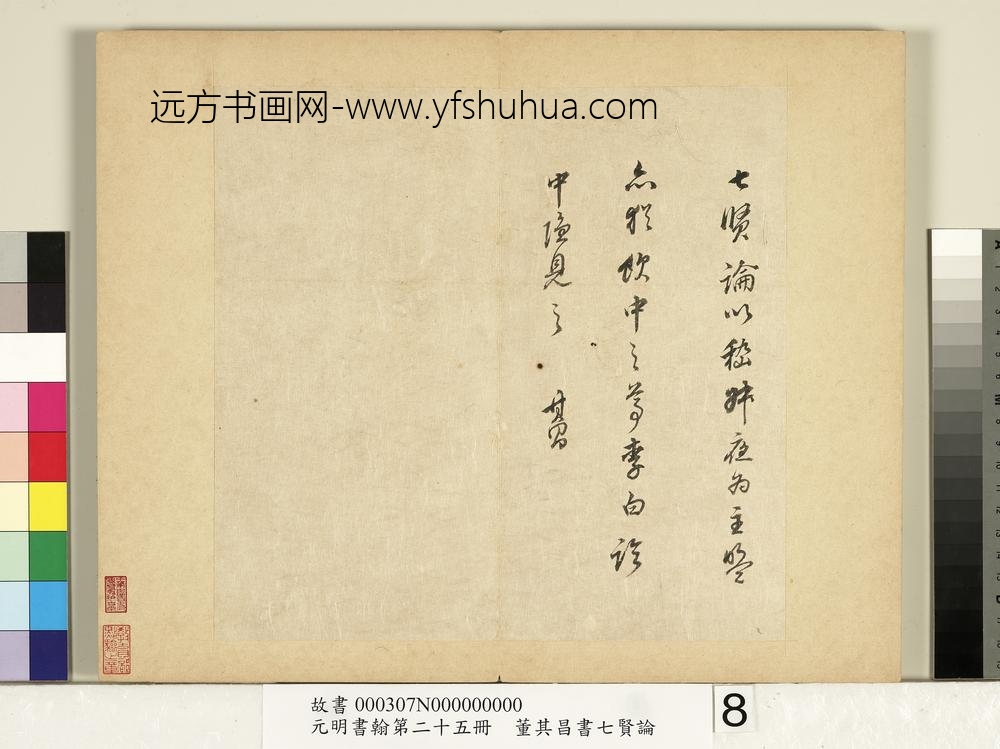 远方书画网-www.yfshuhua.com
七賢論以嵇叔夜為主盟
亦猶飲中之尊李白論
中隱見之 其昌
故書 000307N000000000
元明書翰第二十五冊 董其昌書七賢論
8